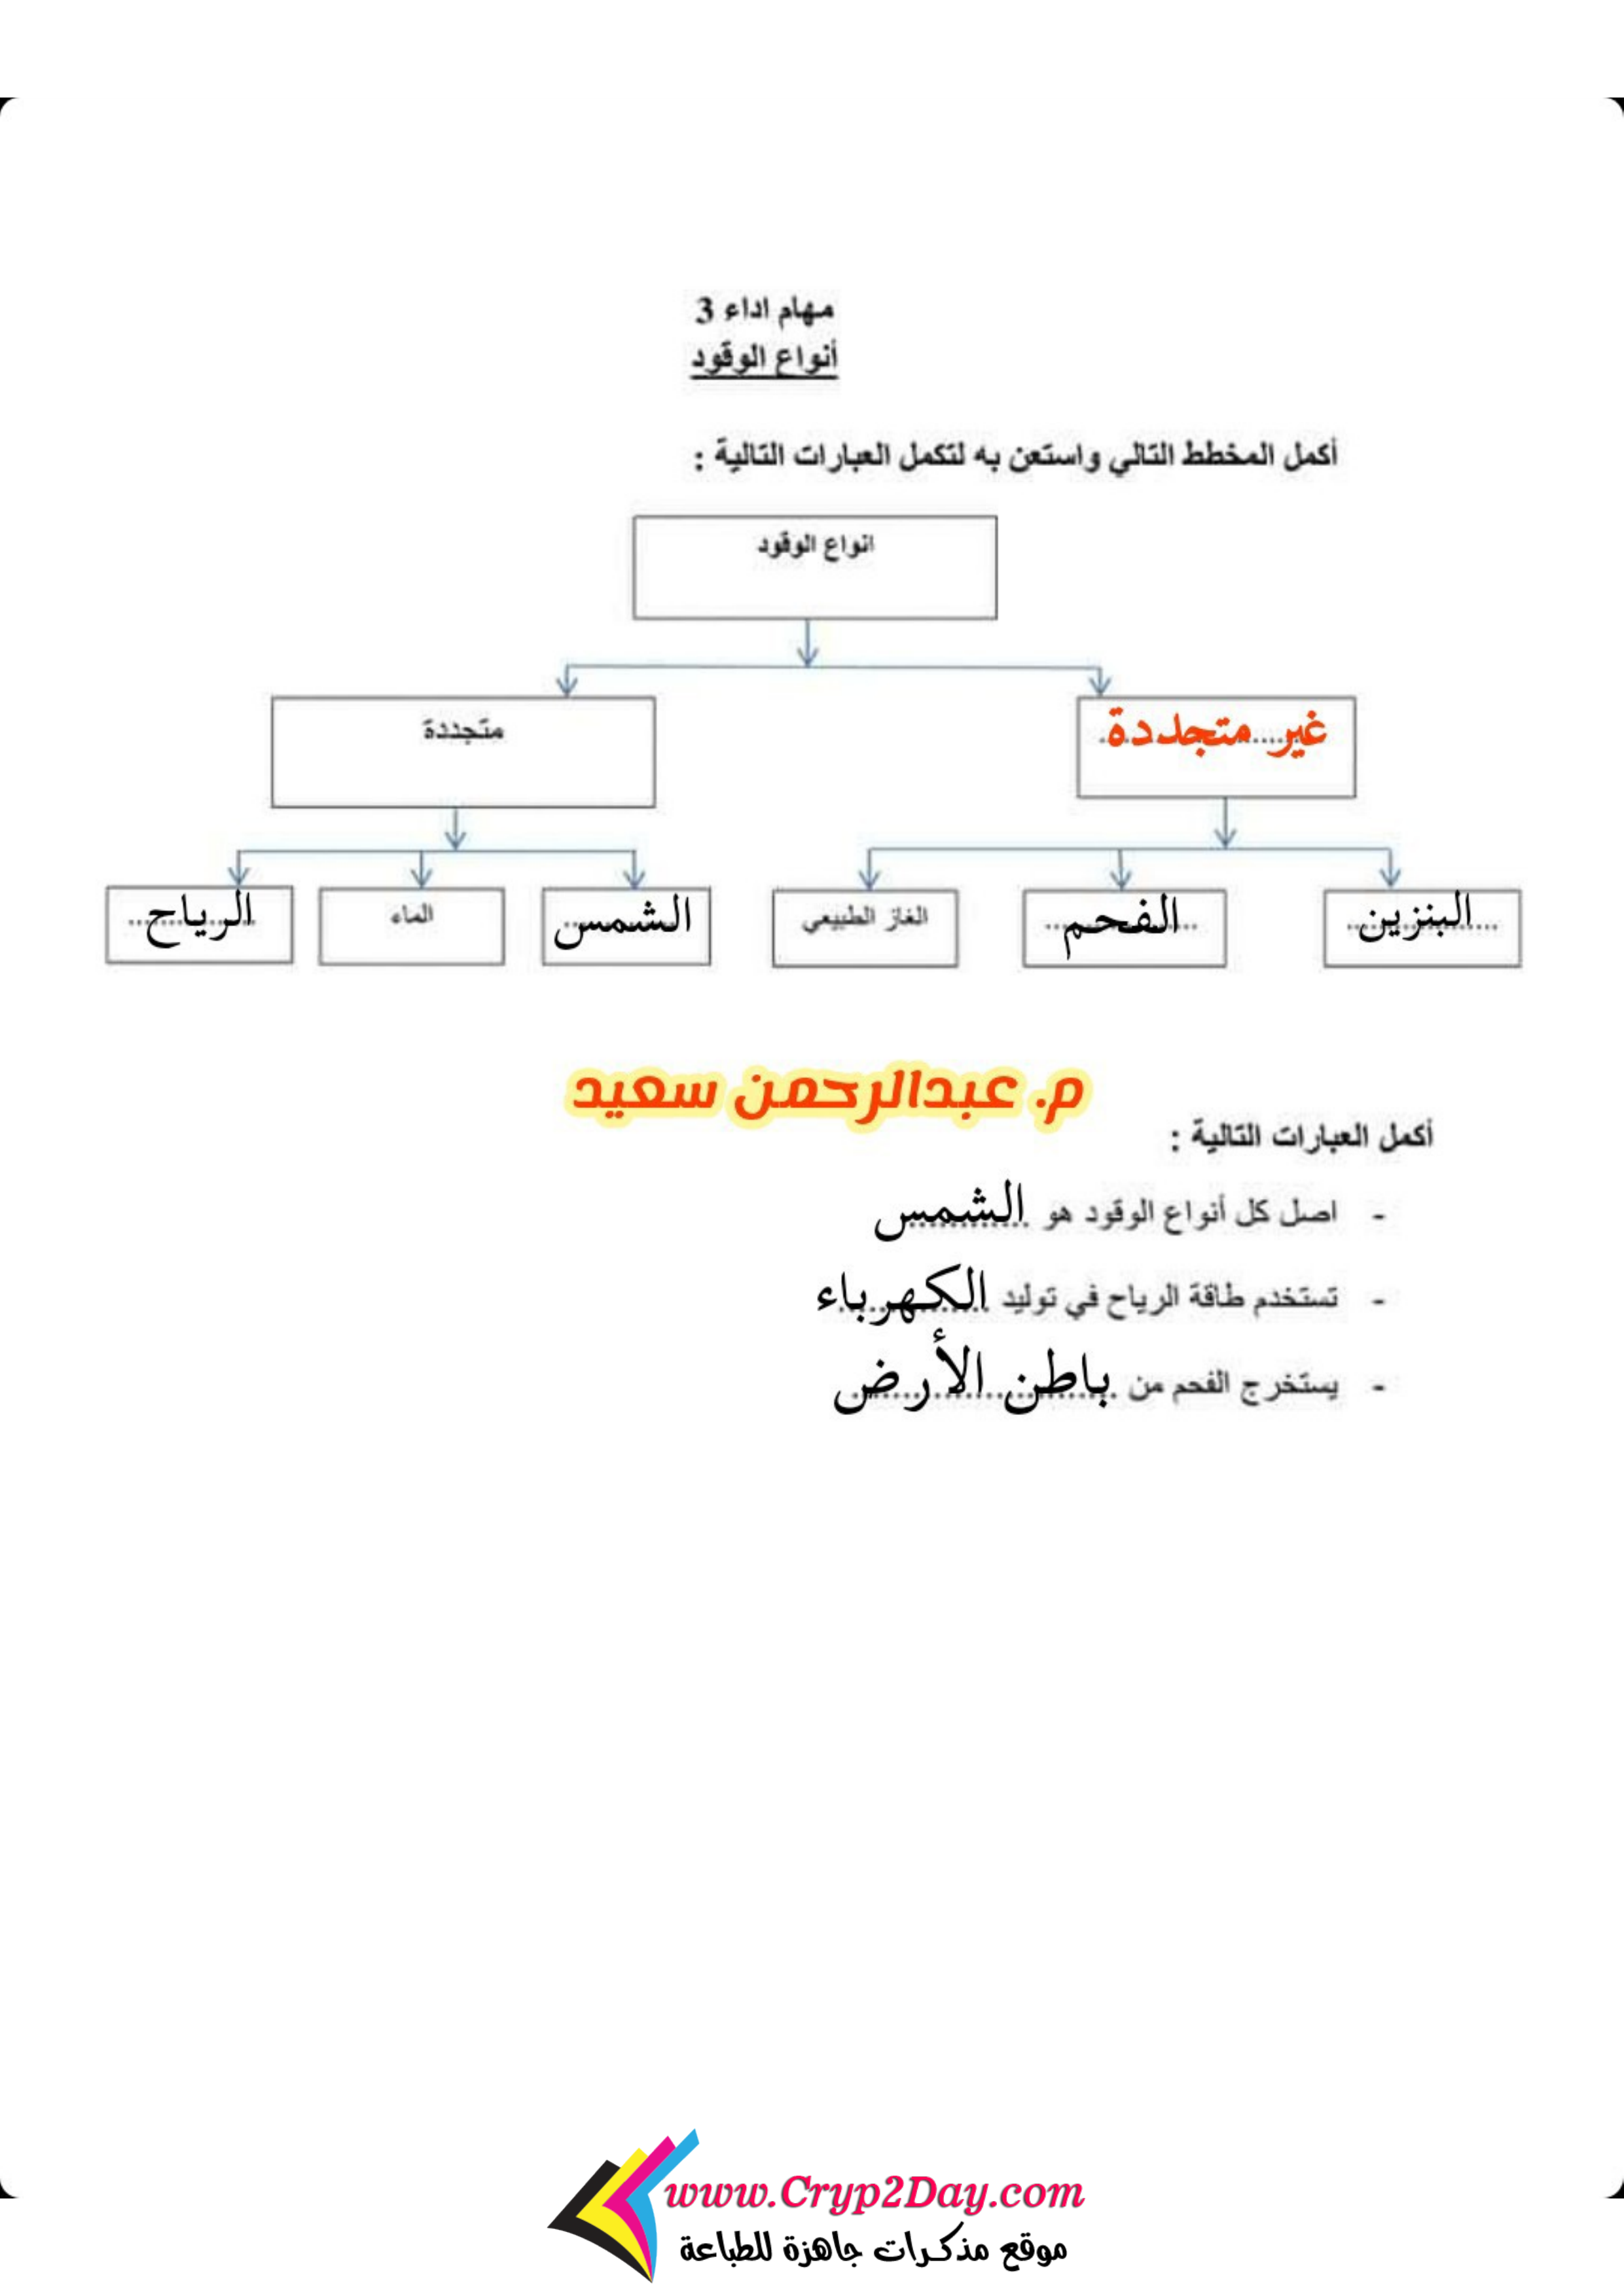 مهام اداء 3
أنواع الوقود
أكمل المخطط التالي واستعن به لتكمل العبارات التالية :
انواع الوقود
غير متجددة
متجددة
البنزين
الفحم
الغاز الطبيعي
الشمس
الماء
الرياح
م. عبدالرحمن سعيد
أكمل العبارات التالية :
- اصل كل أنواع الوقود هو الشمس
- تستخدم طاقة الرياح في توليد الكهرباء
- يستخرج الفحم من باطن الأرض
www.Cryp2Day.com
موقع مذكرات جاهزة للطباعة